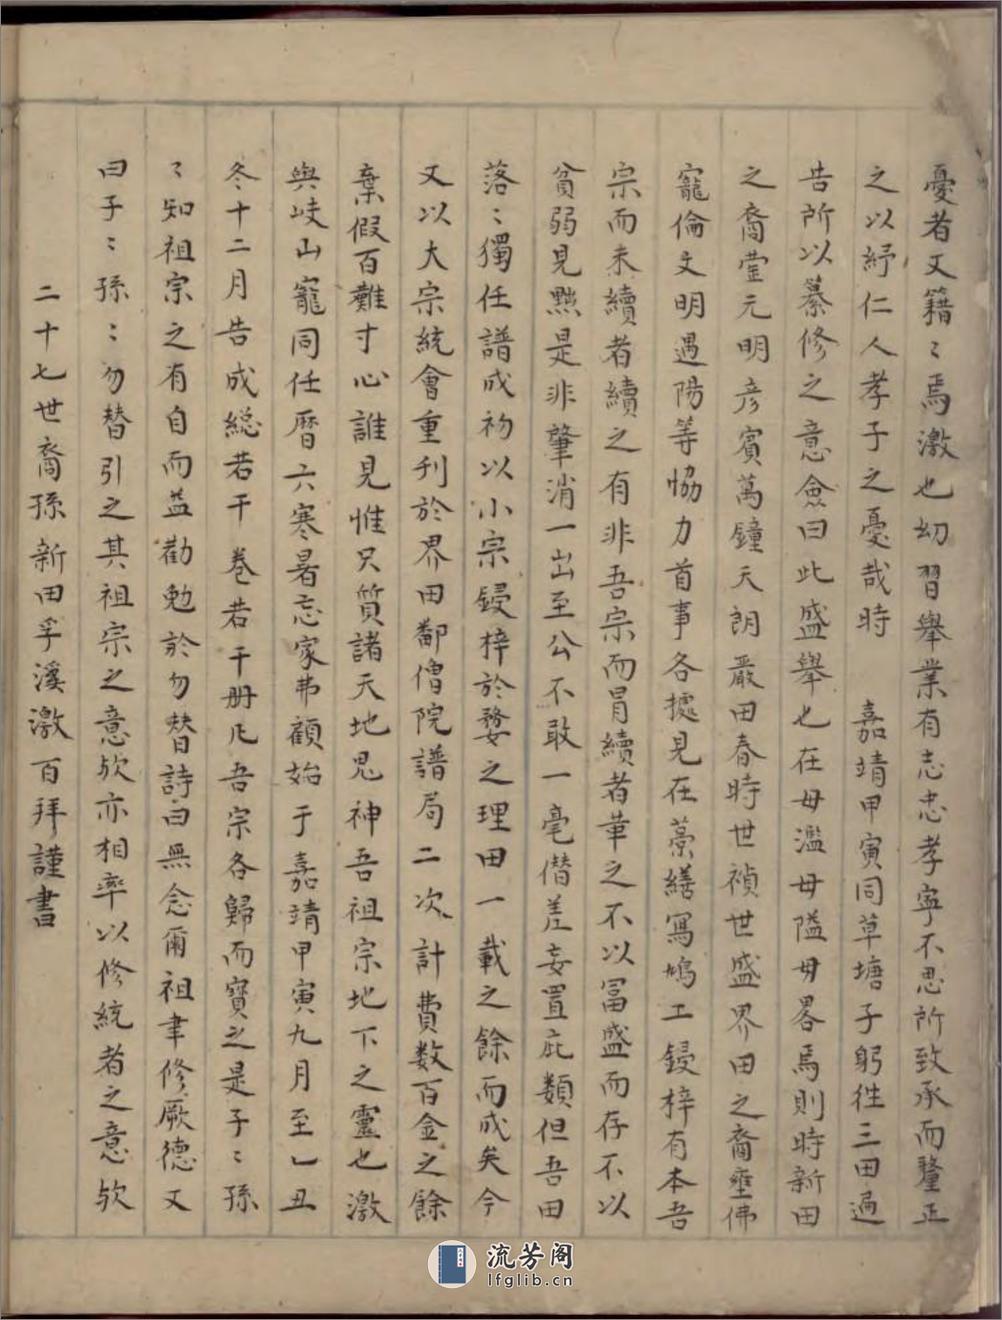 憂者文籍〻焉激也幼習舉業有志忠孝寧不思所致承而釐正
之以紓仁人孝子之憂哉時 嘉靖甲寅同草塘子躬徃三田過
告所以纂修之意僉曰此盛舉也在毋濫毋隘毋畧焉則時新田
之裔瑩元明彦賓萬鐘天朗嚴田春時世禎世盛界田之裔壅佛
寵倫文明遇陽等恊力首事各據見在藁繕寫鳩工鋟梓有本吾
宗而未續者續之有非吾宗而冒續者革之不以冨盛而存不以
貧弱見黜是非肇消一出至公不敢一毫僭差妄置庇類但吾田
落〻獨任譜成初以小宗鋟梓於婺之理田一載之餘而成矣今
又以大宗統會重刋於界田鄰僧院譜局二次計費数百金之餘
棄假百難寸心誰見惟只質諸天地鬼神吾祖宗地下之靈也激
與岐山寵同任曆六寒暑忘家弗顧始于嘉靖甲寅九月至乚丑
冬十二月告成総若干 卷若干册凡吾宗各歸而寳之是子〻孫
〻知祖宗之有自而益勸勉於勿替詩曰無念爾祖聿修厥德又
曰子〻孫〻勿替引之其祖宗之意欤亦相率以修統者之意欤
二十七世裔孫新田孚溪激百拜謹書
流芳阁
lfglib.cn